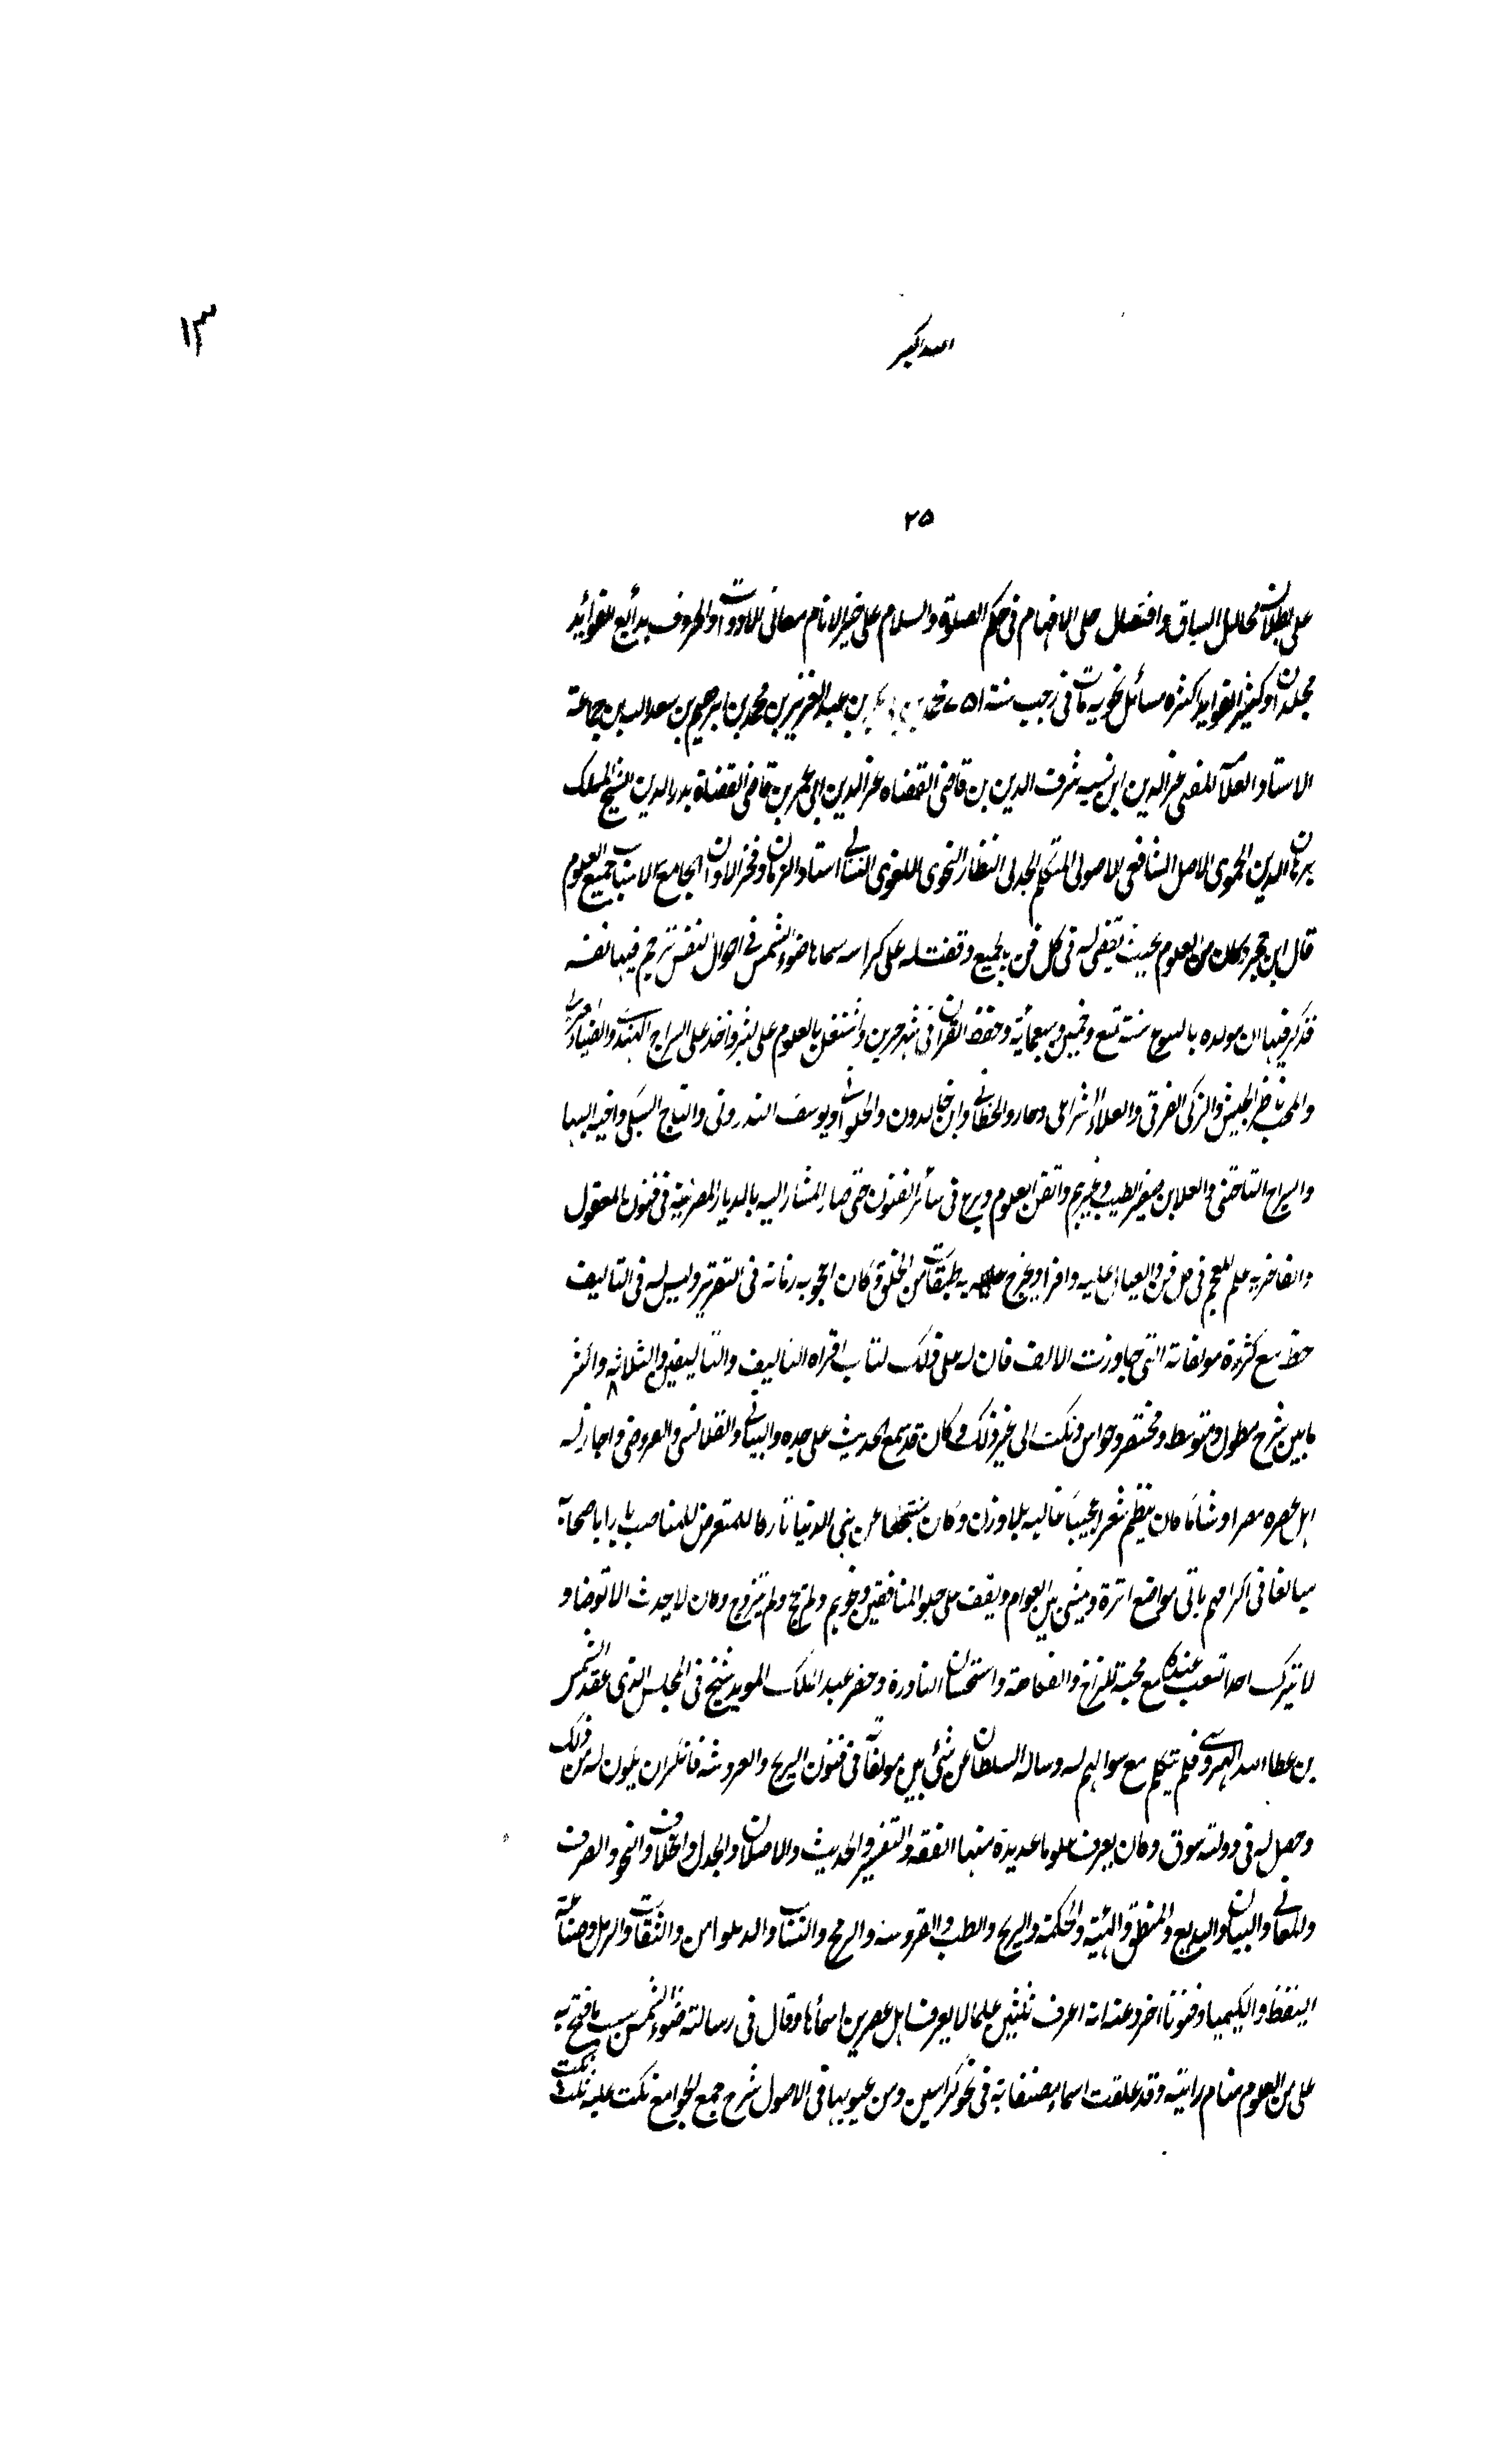 ١٣
الله اكبر
٢٥
على بطلان محلل السباق وافتضال جلى الافهام فى حكم الصلوة والسلام على خير الانام معانى الادوات والحروف بدائع الفوائد
مجلدان وكثير الفوايد اكثره مسائل نحوية مات فى رجب سنة ٧٥١ محمد بن عبد العزيز بن محمد بن ابرهيم بن سعد الله بن جماعة
الاستاد العلامة المفنن عز الدين ابن شرف الدين بن قاضى القضاه عز الدين ابى عمر بن قاضى القضاة بدر الدين المسلك
برهان الدين الحموى الاصل الشافعى الاصولى المتكلم الجدلى النظار النحوى اللغوى البيانى استاد الزمان وفخر الاوان الجامع لاشتات جميع العلوم
قال ابن حجر وكان من العلوم بحيث يقضى له فى كل فن بالجميع وقفت له على كراسه سماها ضوء الشمس فى احوال النفس ترجم فيها نفسه
فذكر فيها ان مولده بالينبوع سنة تسع وخمسين وسبعمائة وحفظ القران فى شهر حرين واشتغل بالعلوم على كبر واخذ على السراج الهندى والضياء القرمى
والمحب ناظر الجيش والركن القرمى والعلاء السيرامى وجار الله والخطابى وابن خلدون والحلوانى ويوسف الندرومى والتاج السبكى واخيه البها
والسراج البلقينى والعلا بن صغير الطبيب وغيرهم واتقن العلوم وبرع فى سائر الفنون حتى صار المشار اليه بالديار المصرية فى فنون المعقول
والمفاخر به علم العجم فى كل فن والعيال عليه واقرا وتخرج به طبقات من الخلق وكان اعجوبة زمانه فى التقرير وليس له فى التاليف
حظ مع كثرة مولفاته التى جاوزت الالف فان له على ذلك كتاب اقراه التاليف والتاليفين والثلاثه واكثر
ما بين شرح مطول ومتوسط ومختصر وحواش ونكت الى غير ذلك وكان قد سمع الحديث على جده والبيانى والقلانسى والعروضى واجاز له
اهل عصره مصرا وشاما كان ينظم شعرا عجيبا غالبه بلا وزن وكان منجمعا عن بنى الدنيا تاركا للتعرض للمناصب بارا باصحابه
مبالغا فى اكرامهم ياتى مواضع النزه ويمشى بين العوام ويقف على حلق المنافقين ونحوهم ولم يحج ولم يتزوج وكان لا يحدث الا توضا و
لا يترك احدا يغتاب عنده مع محبة المزاح والفكاهة واستحسان النادرة وحضر عند الملك المويد شيخ فى المجلس الذى عقد للشمس
بن عطا الله الهروى فلم يتكلم مع سوالهم له وساله السلطان عن شئ من مولفاته فى فنون الرمح والفروسه فانكر ان يكون له من ذلك
وحصل له فى دولته سوق وكان يعرف علوما عديدة منها الفقه والتفسير والحديث والاصلان والجدل والخلاف والنحو والصرف
والمعانى والبيان والبديع والمنطق والهيئة والحكمة والزيج والطب والفروسه والرمح والنشاب والدبوس والثقاف والرمل وصناعة
النفط والكيميا وفنونا اخر وعنه انه اعرف ثلثين علما لا يعرف اهل عصرى اسماءها وقال فى رسالته ضوء الشمس سبب ما فتح به
على من العلوم منام رايته وقد علقت اسماء مصنفاته فى نحو كراسين ومن عيونها فى الاصول شرح جمع الجوامع نكت عليه نكت